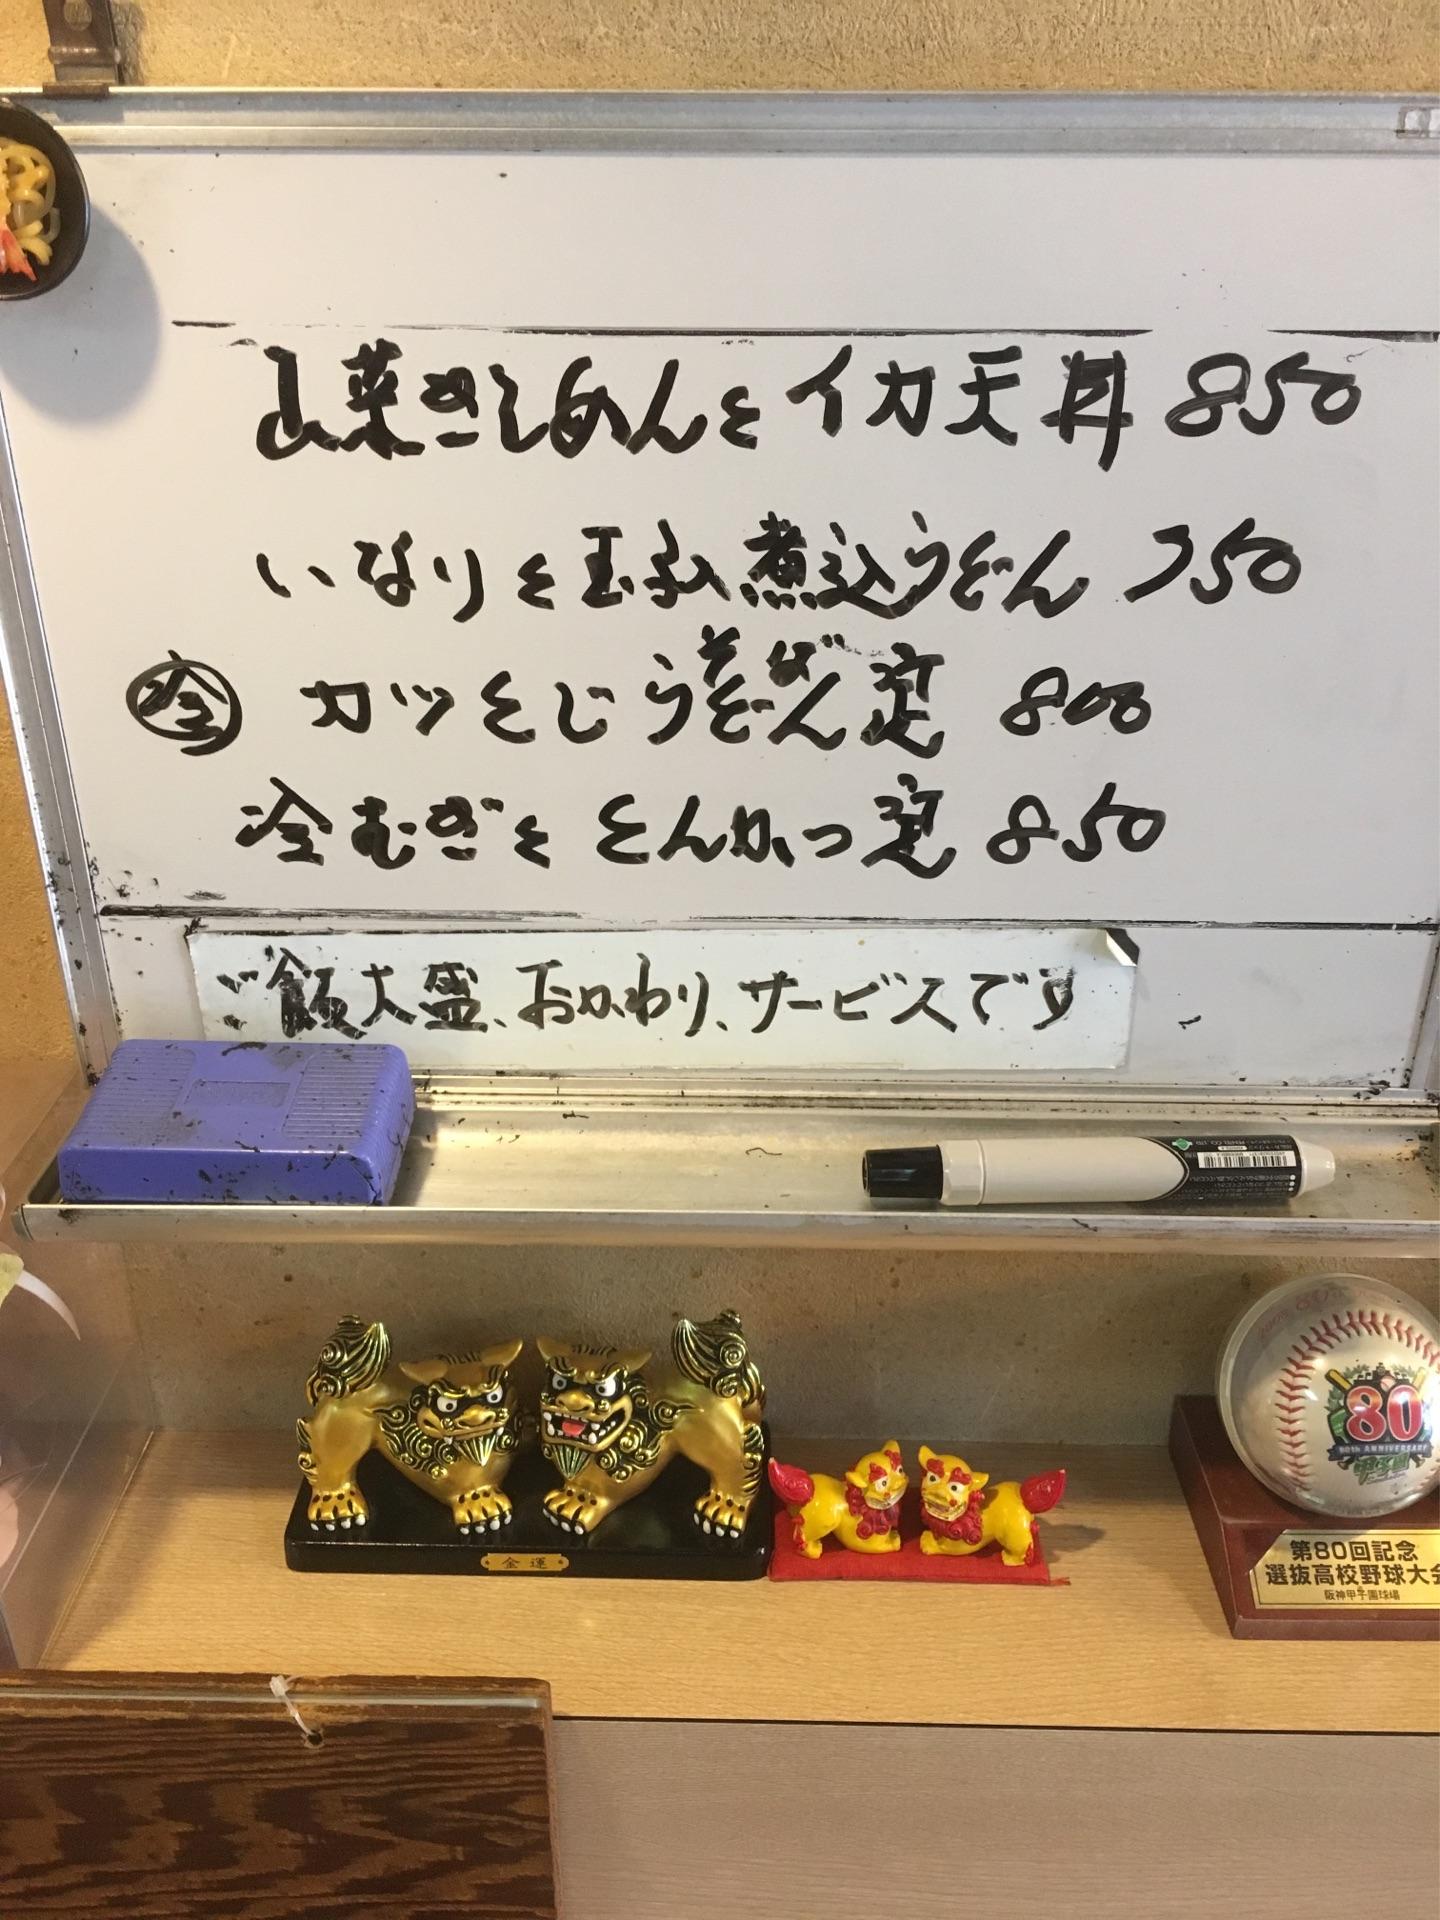 山菜きしめんとイカ天丼 850
いなりと玉子入煮込うどん 750
冷 カツとじうどん定 800
そば
冷むぎと とんかつ定 850
ご飯大盛、おかわり、サービスです
金運
80
80th ANNIVERSARY
甲子園
第80回記念
選抜高校野球大会
阪神甲子園球場